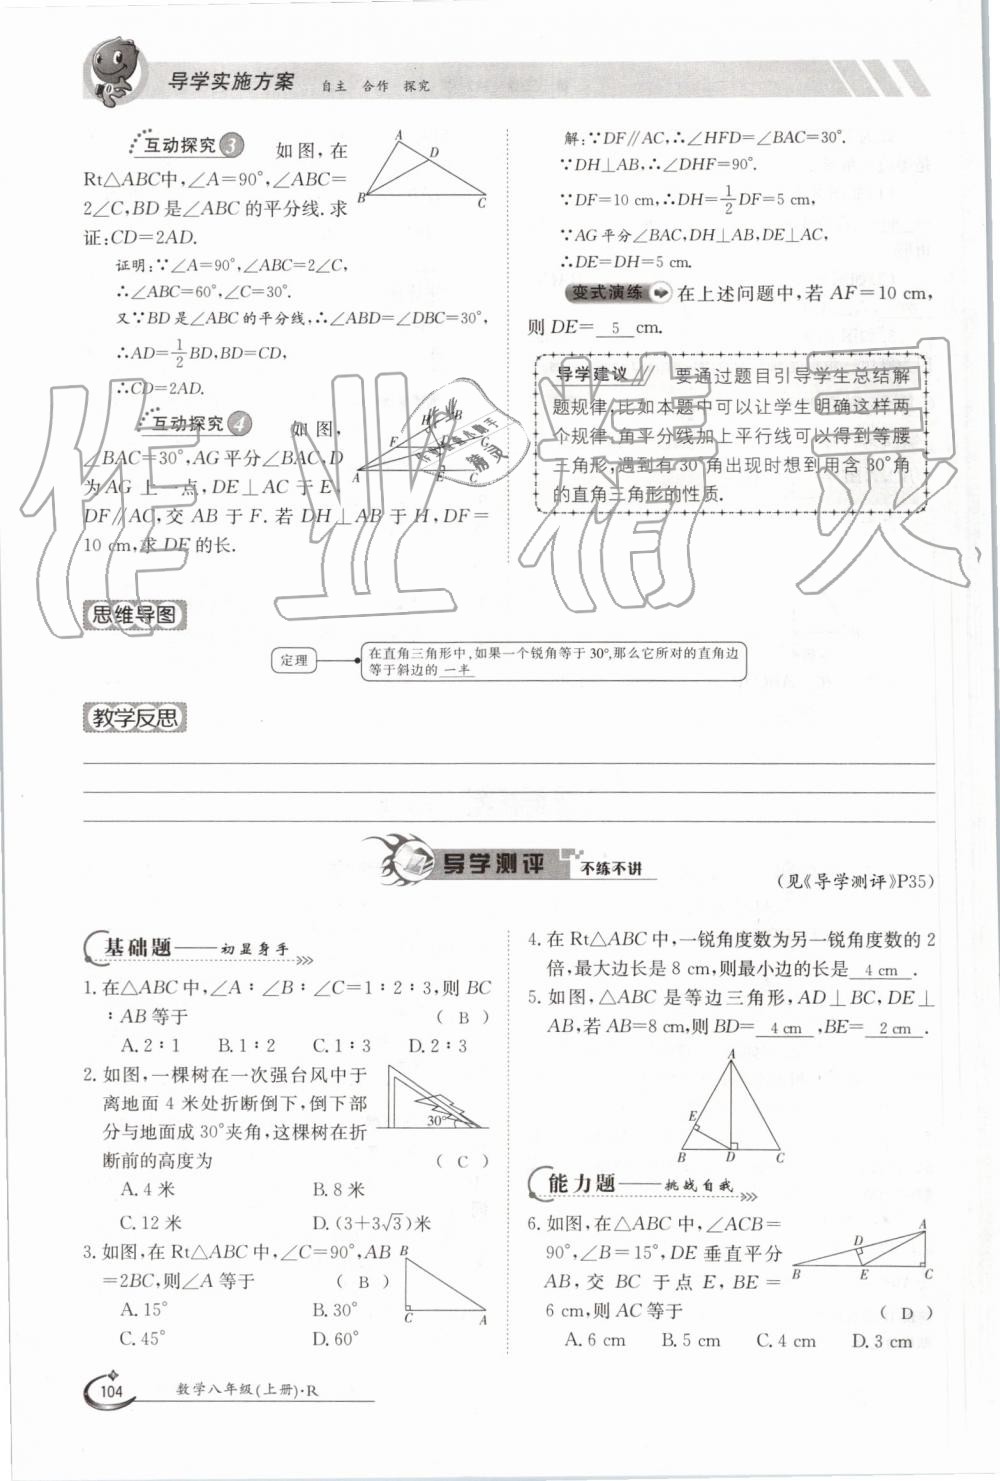 导学实施方案 自主 合作 探究
互动探究3 如图,在
Rt△ABC中,∠A=90°,∠ABC=
2∠C,BD是∠ABC的平分线.求
证:CD=2AD.
A
D
B
C
证明:∵∠A=90°,∠ABC=2∠C,
∴∠ABC=60°,∠C=30°.
又∵BD是∠ABC的平分线,∴∠ABD=∠DBC=30°,
∴AD=1/2BD,BD=CD,
∴CD=2AD.
互动探究4 如图,
∠BAC=30°,AG平分∠BAC,D
为AG上一点,DE⊥AC于E,
DF∥AC,交AB于F.若DH⊥AB于H,DF=
10 cm,求DE的长.
H B
F D G
A E C
解:∵DF∥AC,∴∠HFD=∠BAC=30°.
∵DH⊥AB,∴∠DHF=90°.
∵DF=10 cm,∴DH=1/2DF=5 cm,
∵AG平分∠BAC,DH⊥AB,DE⊥AC,
∴DE=DH=5 cm.
变式演练 在上述问题中,若AF=10 cm,
则DE= 5 cm.
导学建议 要通过题目引导学生总结解
题规律,比如本题中可以让学生明确这样两
个规律,角平分线加上平行线可以得到等腰
三角形,遇到有30°角出现时想到用含30°角
的直角三角形的性质.
作业精灵
思维导图
定理
在直角三角形中,如果一个锐角等于30°,那么它所对的直角边
等于斜边的 一半
教学反思
导学测评 不练不讲
(见《导学测评》P35)
基础题——初显身手
1.在△ABC中,∠A∶∠B∶∠C=1∶2∶3,则BC
∶AB等于 ( B )
A.2∶1 B.1∶2 C.1∶3 D.2∶3
2.如图,一棵树在一次强台风中于
离地面4米处折断倒下,倒下部
分与地面成30°夹角,这棵树在折
断前的高度为 ( C )
30°
A.4米 B.8米
C.12米 D.(3+3√3)米
3.如图,在Rt△ABC中,∠C=90°,AB
=2BC,则∠A等于 ( B )
A.15° B.30°
C.45° D.60°
B
C
A
4.在Rt△ABC中,一锐角度数为另一锐角度数的2
倍,最大边长是8 cm,则最小边的长是 4 cm .
5.如图,△ABC是等边三角形,AD⊥BC,DE⊥
AB,若AB=8 cm,则BD= 4 cm ,BE= 2 cm .
A
E
B D C
能力题——挑战自我
6.如图,在△ABC中,∠ACB=
90°,∠B=15°,DE垂直平分
AB,交BC于点E,BE=
6 cm,则AC等于 ( D )
A
D
B E C
A.6 cm B.5 cm C.4 cm D.3 cm
104 数学八年级(上册)·R